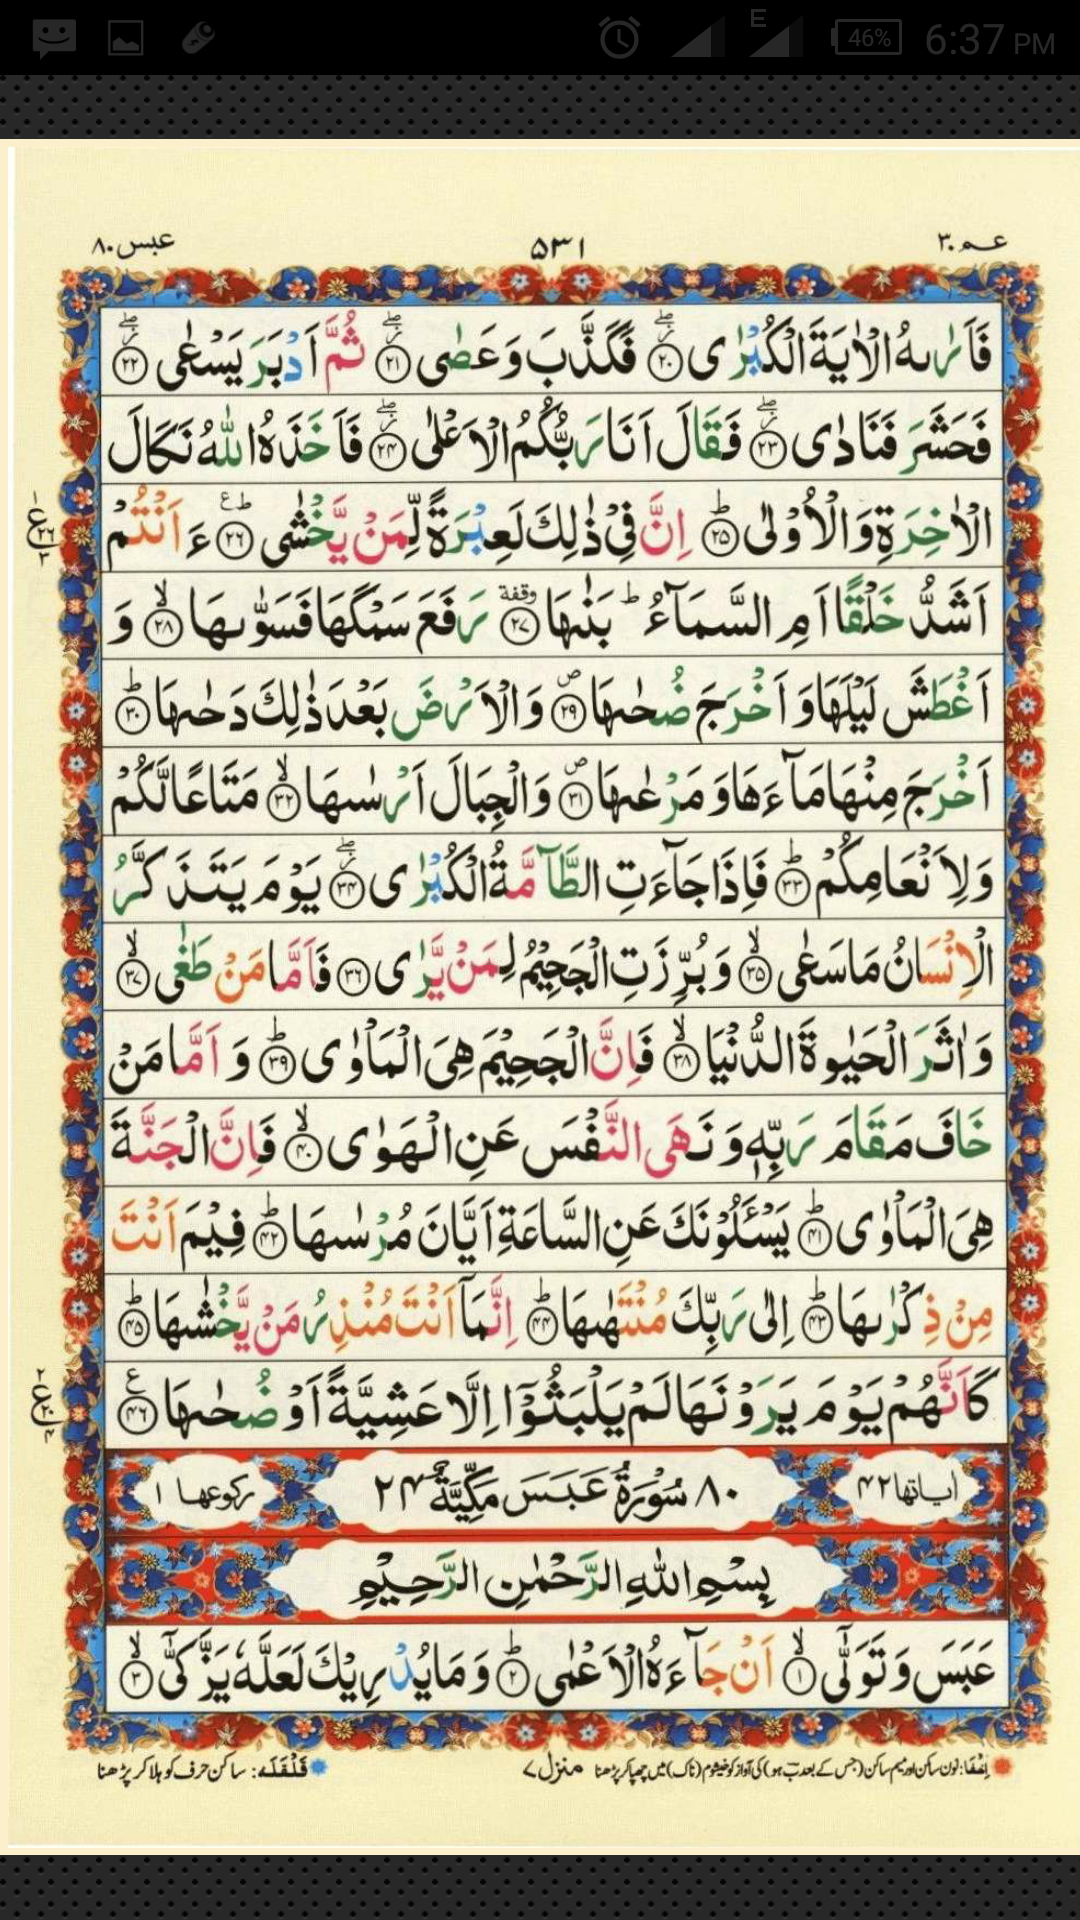 46% 6:37 PM
E
عبس ٨٠ ٥٣١ عـم ٣٠
فَاَرٰىهُ الْاٰيَةَ الْكُبْرٰى ﴿٢٠﴾ فَكَذَّبَ وَ عَصٰى ﴿٢١﴾ ثُمَّ اَدْبَرَ يَسْعٰى ﴿٢٢﴾
فَحَشَرَ فَنَادٰى ﴿٢٣﴾ فَقَالَ اَنَا رَبُّكُمُ الْاَعْلٰى ﴿٢٤﴾ فَاَخَذَهُ اللّٰهُ نَكَالَ
الْاٰخِرَةِ وَ الْاُوْلٰى ؕ﴿٢٥﴾ اِنَّ فِيْ ذٰلِكَ لَعِبْرَةً لِّمَنْ يَّخْشٰى ﴿٢٦﴾ ءَ اَنْتُمْ
اَشَدُّ خَلْقًا اَمِ السَّمَآءُ ؕ بَنٰىهَا ﴿٢٧﴾ وقفة رَفَعَ سَمْكَهَا فَسَوّٰىهَا ۙ﴿٢٨﴾ وَ
اَغْطَشَ لَيْلَهَا وَ اَخْرَجَ ضُحٰىهَا ۪﴿٢٩﴾ وَ الْاَرْضَ بَعْدَ ذٰلِكَ دَحٰىهَا ؕ﴿٣٠﴾
اَخْرَجَ مِنْهَا مَآءَهَا وَ مَرْعٰىهَا ۪﴿٣١﴾ وَ الْجِبَالَ اَرْسٰىهَا ۙ﴿٣٢﴾ مَتَاعًا لَّكُمْ
وَ لِاَنْعَامِكُمْ ؕ﴿٣٣﴾ فَاِذَا جَآءَتِ الطَّآمَّةُ الْكُبْرٰى ﴿٣٤﴾ يَوْمَ يَتَذَكَّرُ
الْاِنْسَانُ مَا سَعٰى ۙ﴿٣٥﴾ وَ بُرِّزَتِ الْجَحِيْمُ لِمَنْ يَّرٰى ﴿٣٦﴾ فَاَمَّا مَنْ طَغٰى ۙ﴿٣٧﴾
وَ اٰثَرَ الْحَيٰوةَ الدُّنْيَا ۙ﴿٣٨﴾ فَاِنَّ الْجَحِيْمَ هِيَ الْمَاْوٰى ؕ﴿٣٩﴾ وَ اَمَّا مَنْ
خَافَ مَقَامَ رَبِّهٖ وَ نَهَى النَّفْسَ عَنِ الْهَوٰى ۙ﴿٤٠﴾ فَاِنَّ الْجَنَّةَ
هِيَ الْمَاْوٰى ؕ﴿٤١﴾ يَسْـَٔلُوْنَكَ عَنِ السَّاعَةِ اَيَّانَ مُرْسٰىهَا ؕ﴿٤٢﴾ فِيْمَ اَنْتَ
مِنْ ذِكْرٰىهَا ؕ﴿٤٣﴾ اِلٰى رَبِّكَ مُنْتَهٰىهَا ؕ﴿٤٤﴾ اِنَّمَاۤ اَنْتَ مُنْذِرُ مَنْ يَّخْشٰىهَا ؕ﴿٤٥﴾
كَاَنَّهُمْ يَوْمَ يَرَوْنَهَا لَمْ يَلْبَثُوْۤا اِلَّا عَشِيَّةً اَوْ ضُحٰىهَا ﴿٤٦﴾
اٰياتها ٤٢ ٨٠ سُوْرَةُ عَبَسَ مَكِّيَّةٌ ٢٤ ركوعها ١
بِسْمِ اللّٰهِ الرَّحْمٰنِ الرَّحِيْمِ
عَبَسَ وَ تَوَلّٰٓى ۙ﴿١﴾ اَنْ جَآءَهُ الْاَعْمٰى ؕ﴿٢﴾ وَ مَا يُدْرِيْكَ لَعَلَّهٗ يَزَّكّٰٓى ۙ﴿٣﴾
اِخْفَا: نون ساکن اور میم ساکن (جس کے بعد ب ہو) کی آواز کو خیشوم (ناک) میں چھپا کر پڑھنا منزل ٧ قَلْقَلَه: ساکن حرف کو ہلا کر پڑھنا